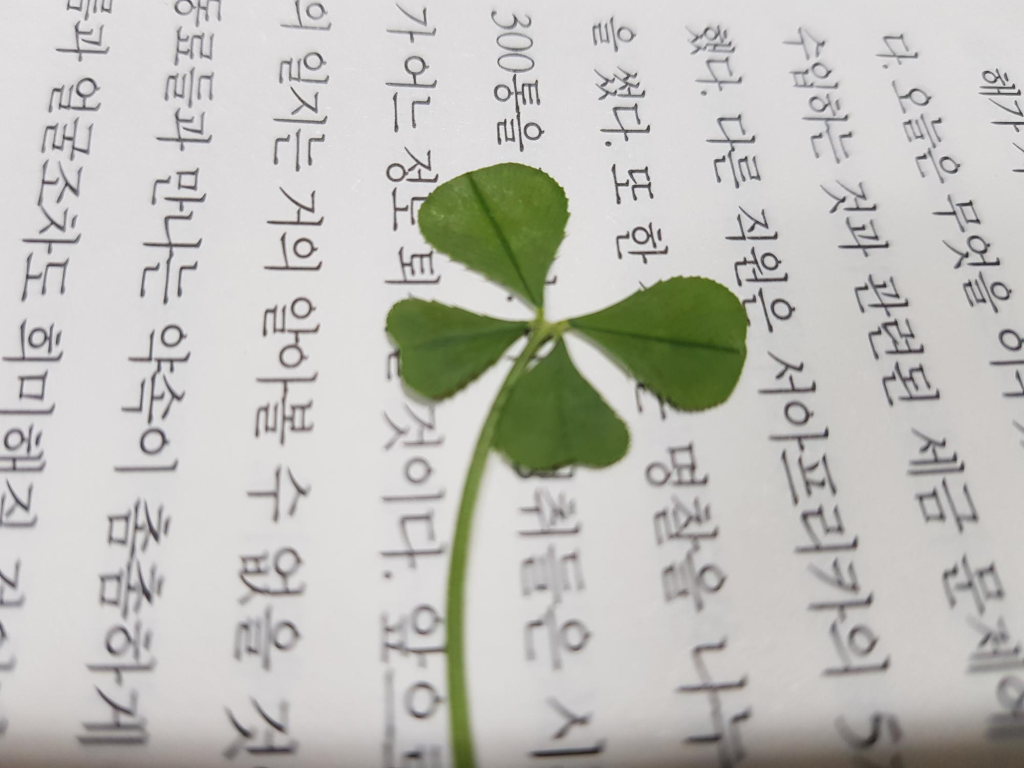 해가
다. 오늘은 무엇을
수입하는 것과 관련된 세금 문제에
했다. 다른 직원은 서아프리카의
을 썼다. 또 한 명찰을 나누
300통을
가 어느 정도 것이다. 앞으로
의 일지는 거의 알아볼 수 없을 것
동료들과 만나는 약속이 촘촘하게
들과 얼굴조차도 희미해진